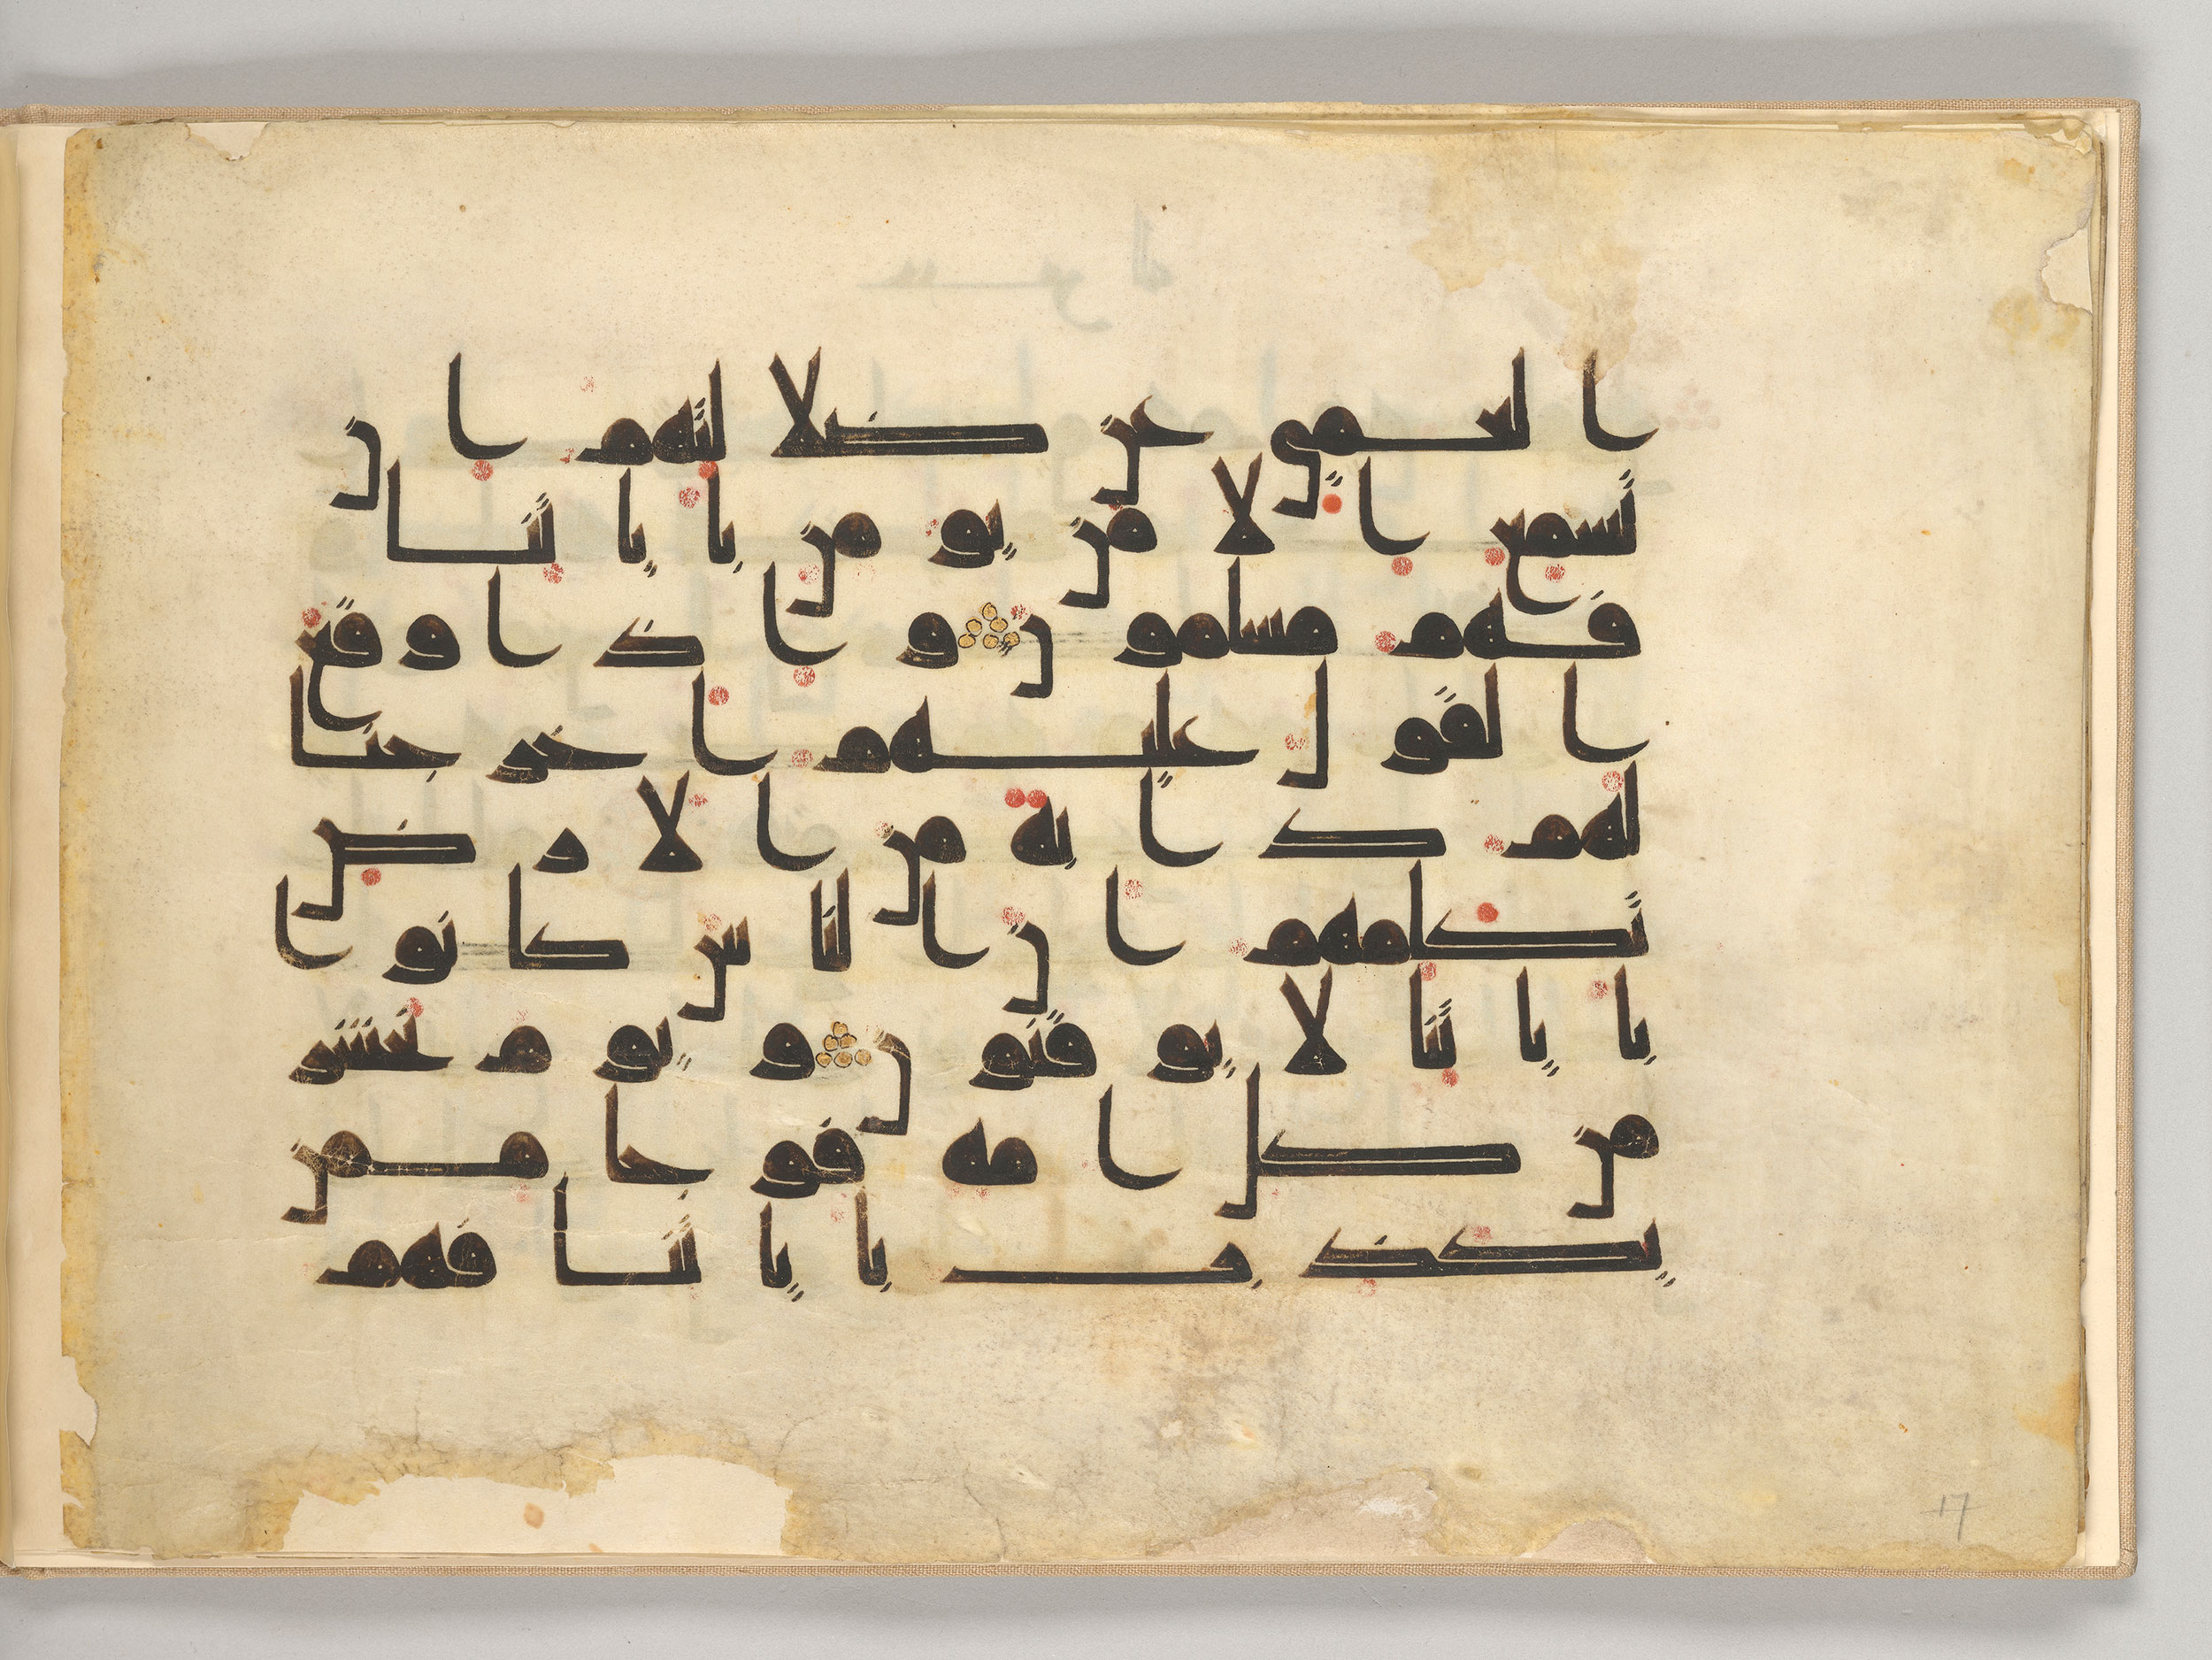 العمي عن ضلالتهم ان
تسمع الا من يومن باياتنا
فهم مسلمون واذا وقع
القول عليهم اخرجنا
لهم دابة من الارض
تكلمهم ان الناس كانوا
باياتنا لا يوقنون ويوم نحشر
من كل امة فوجا ممن
يكذب باياتنا فهم
17